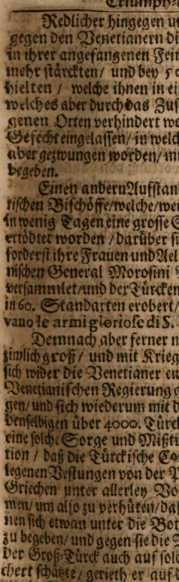 Triumph
Redlicher hingegen u
gegen den Venetianern di
in ihrer angefangenen Fein
mehr stärckten / und bey 50
hielten / welche ihnen in ei
welches aber durch das Zus
genen Orten verhindert wo
Gefecht eingelassen / in welch
aber gezwungen worden / in
begeben.
Einen andern Auffstan
tischen Bischöffe / welche / we
in wenig Tagen eine grosse S
ertödtet worden / darüber si
forderist ihre Frauen und Ael
nischen General Morosini
versammlet / und der Türcken
in 60. Standarten erobert /
vano le armi gloriose di S.
Demnach aber ferner n
zimlich groß / und mit Krieg
sich wider die Venetianer en
Venetianischen Regierung g
gen / und sich wiederum mit d
denselbigen über 4000. Türck
eine solche Sorge und Mißtr
tion / daß die Türckische Co
legenen Vestungen von der P
Griechen unter allerley Vo
men / um also zu verhüten / daß
nen sich etwan unter die Bot
zu begeben / und gegen sie die T
der Groß-Türck auch auf solc
chert schätzte / gerieth er auf d